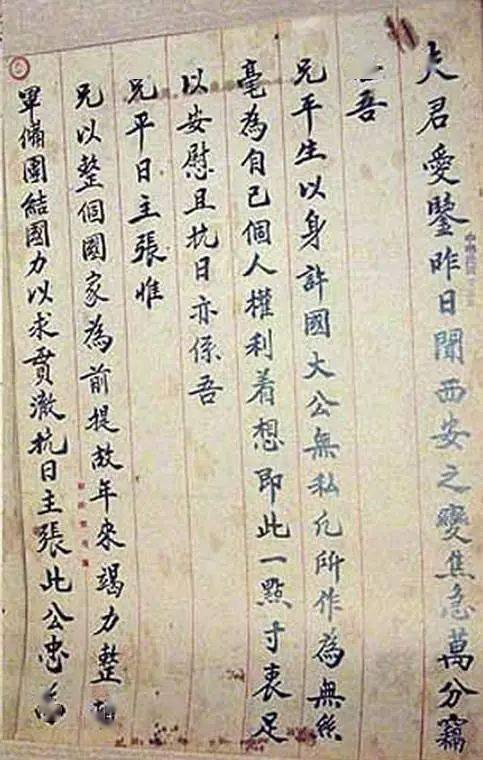 夫君愛鑒昨日聞西安之變焦急萬分竊
吾
兄平生以身許國大公無私凡所作為無絲
毫為自己個人權利着想即此一點寸衷足
以安慰且抗日亦係吾
兄平日主張惟
兄以整個國家為前提故年來竭力整
軍備團結國力以求貫澈抗日主張此公忠